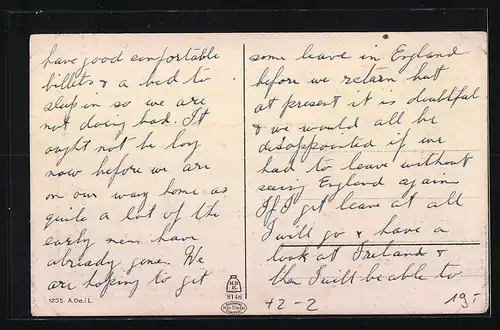 have good comfortable
billets & a bed to
sleep in so we are
not doing bad. It
ought not be long
now before we are
on our way home as
quite a lot of the
early men have
already gone. We
are hoping to get
some leave in England
before we return but
at present it is doubtful
& we would all be
disappointed if we
had to leave without
seeing England again
If I get leave at all
I will go & have a
look at Ireland &
then I will be able to
1235. A.Oe.i.L.
8146
+2-2
19,-